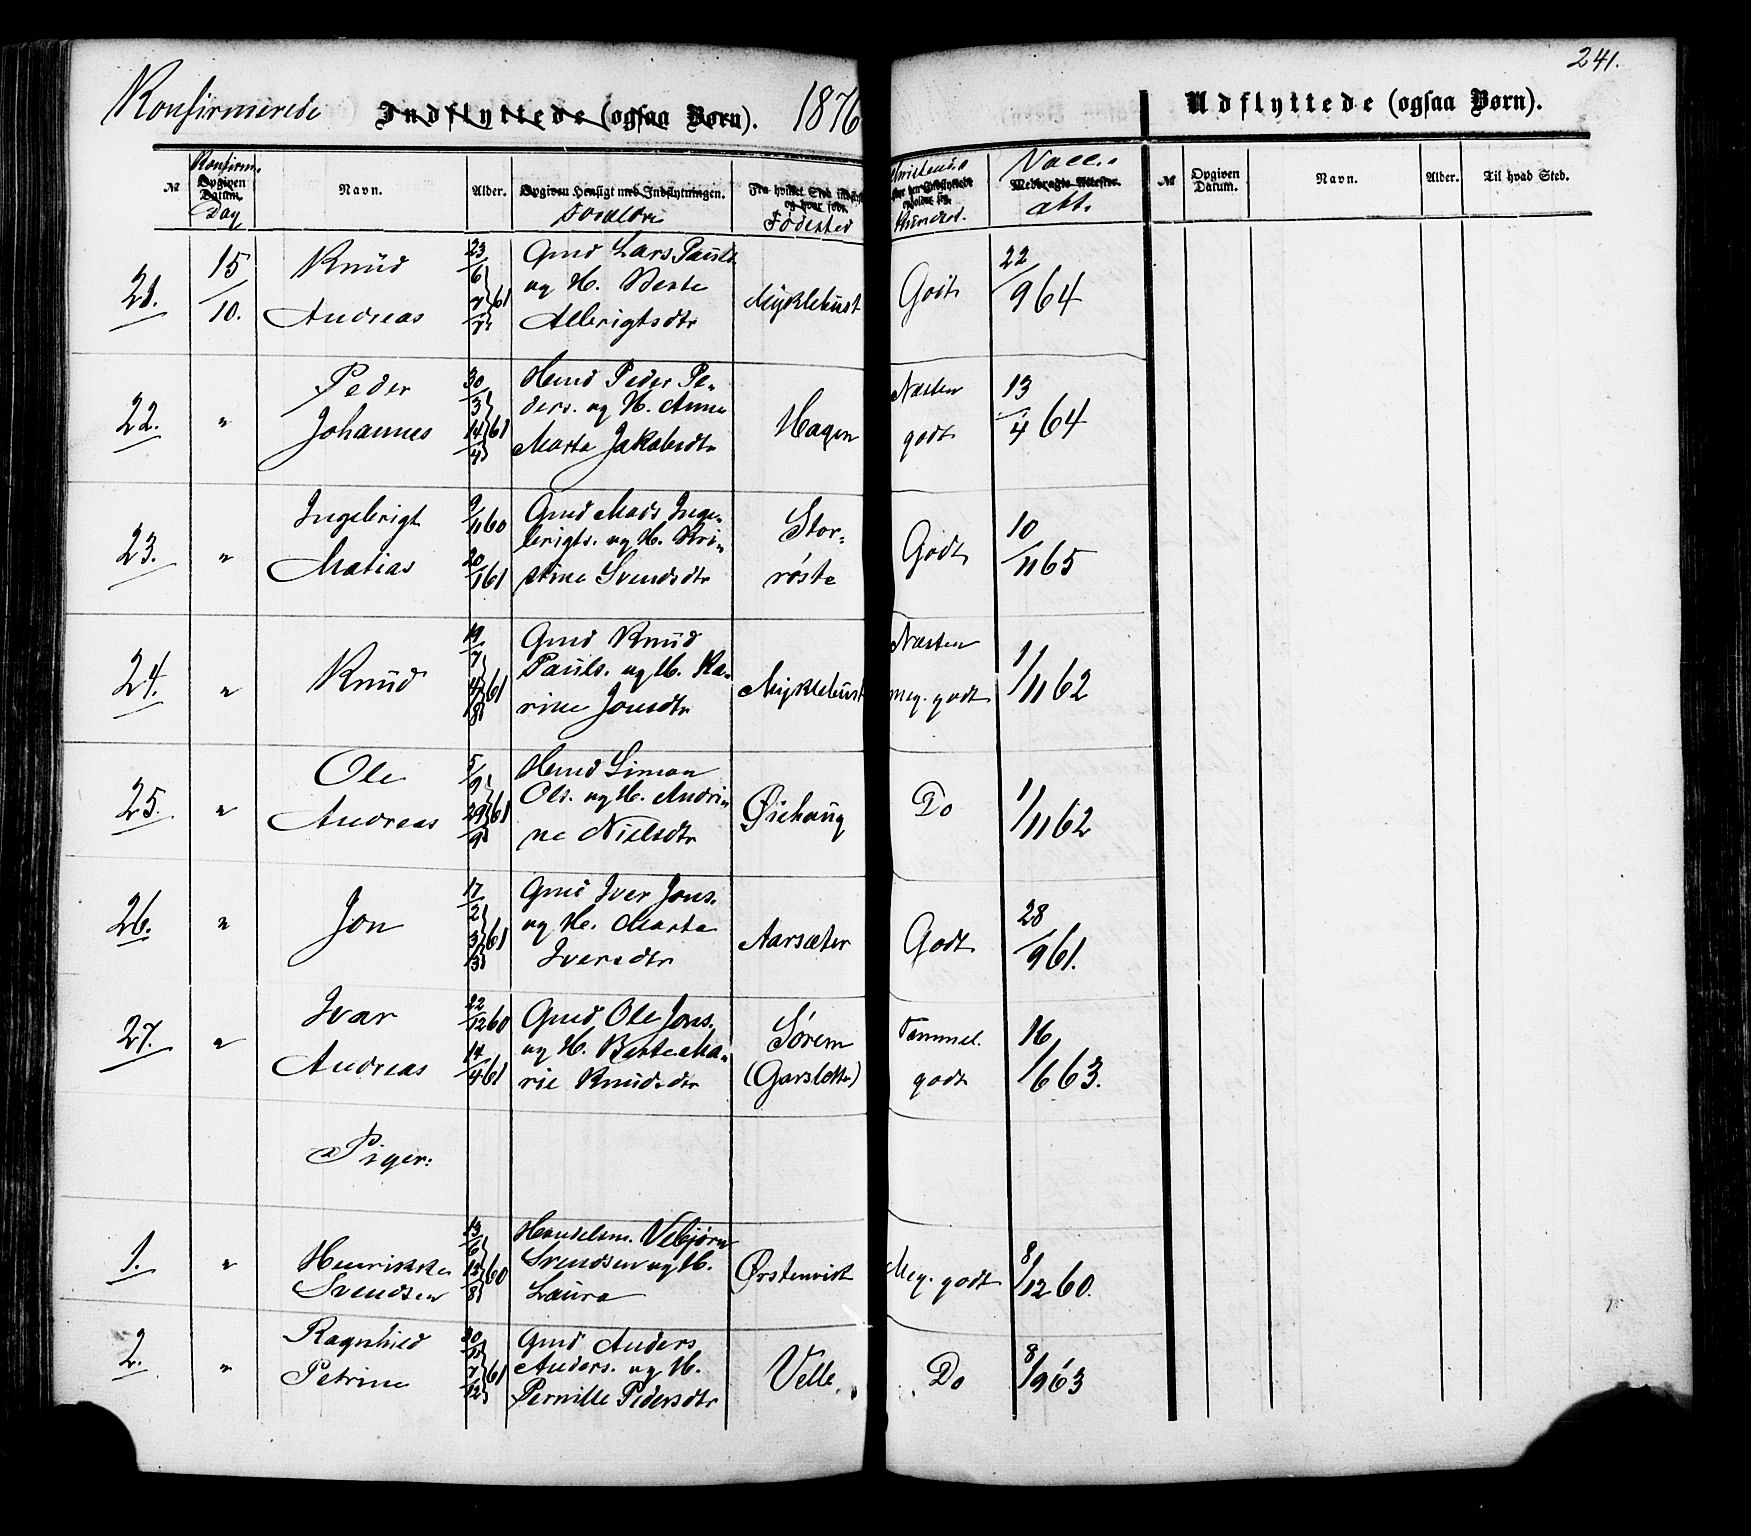 241.
Konfirmerede Indflyttede (ogsaa Børn). 1876
Udflyttede (ogsaa Børn).
№ Konfirm. Opgiven Datum. Dag Navn. Alder. Opgiven Hensigt med Indflytningen. Forældre Fødested Vacc. Medbragte Attester. att.
№ Opgiven Datum. Navn. Alder. Til hvad Sted.
21. 15/10. Knud Andreas 23/6 7/7 61
Gmd Lars Pauls.
og H. Berte
Albrigtsdtr
Myklebust Godt 22/9 64
22. " Peder Johannes 30/3 14/4 61
Hmd Peder Pe-
ders. og H. Anne
Marta Jakobsdtr
Hagen Næsten godt 13/4 64
23. " Ingebrigt Matias 9/11 60 20/1 61
Gmd Mads Inge-
brigts. og H. Kri-
stine Svendsdtr
Stor-
røste
Godt 10/11 65
24. " Knud 19/7 4/8 61
Gmd Knud
Pauls. og H. Ka-
rine Jonsdtr
Myklebust Næsten meg. godt 1/11 62
25. " Ole Andreas 5/9 29/9 61
Hmd Simon
Ols. og H. Andri-
ne Nielsdtr
Øiehaug Do 1/11 62
26. " Jon 17/2 3/3 61
Gmd Iver Jons.
og H. Marta
Iversdtr
Aarsæter Godt 28/9 61.
27. " Ivar Andreas 22/12 60 14/4 61
Gmd Ole Jons.
og H. Berte Ma-
rie Knudsdtr
Sørem
(Garslotte)
Temmel. godt 16/6 63.
Piger:
1. " Henrikke Svendsen 13/6 15/8 60
Handelsm. Vebjørn
Svendsen og H.
Laura
Ørstenvik Meg. godt 8/12 60.
2. " Ragnhild Petrine 30/11 7/12 61
Gmd Anders
Anders. og H.
Pernille Pedersdtr
Velle. Do 8/9 63